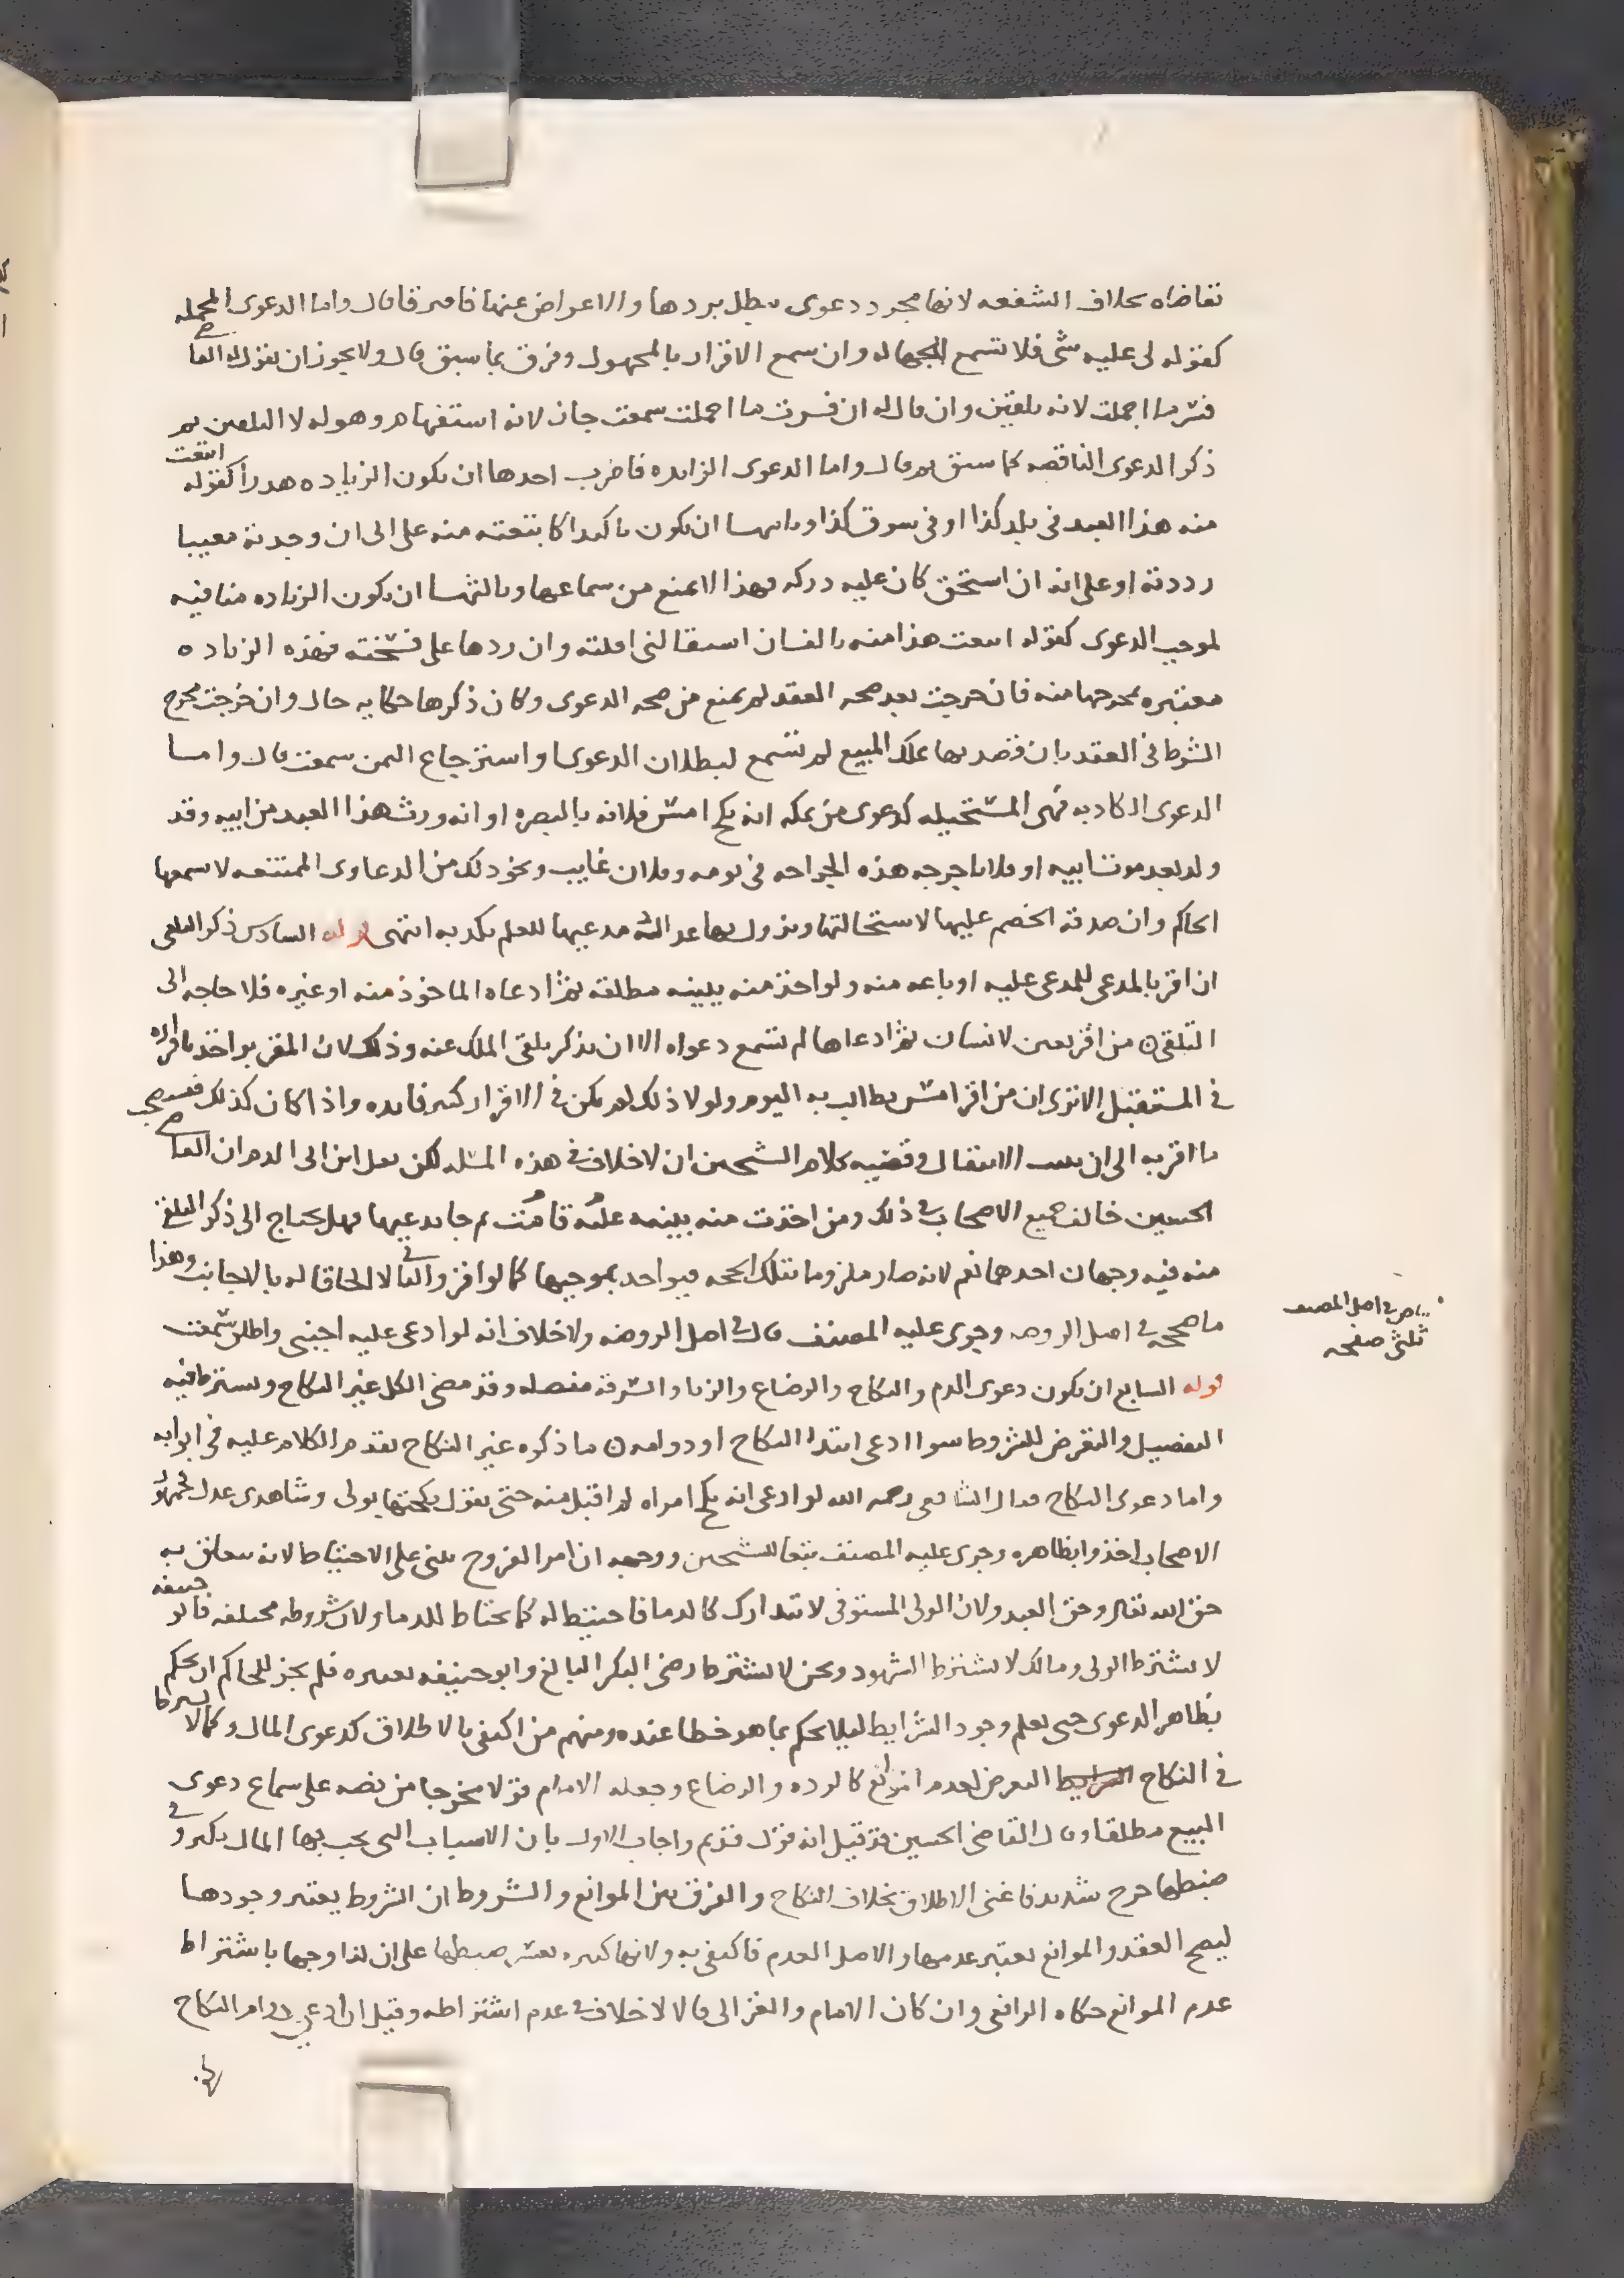 تقاضاه بخلاف الشفعه لانها مجرد دعوى يبطل بردها والاعراض عنها فافترقا قال واما الدعوى المجمله
كقوله لى عليه شى فلا تسمع للجهاله وان سمع الاقرار بالمجهول وفرق بما سبق قال ولا يجوز ان يقول له القاضى
فسر ما اجملت لانه تلقين وان قال له ان فسرت ما اجملت سمعت جاز لانه استفهام وهو له لا التلقين ثم
ذكر الدعوى الناقصه كما سبق ثم قال واما الدعوى الزايده فاضرب احدها ان يكون الزياده هدرا كقوله ابتعت
منه هذا العبد فى بلد كذا او فى سوق كذا وثانيها ان يكون تاكيدا كابتعته منه على انى ان وجدته معيبا
رددته او على انه ان استحق كان عليه دركه فهذا لا يمنع من سماعها وثالثها ان يكون الزياده منافيه
لموجب الدعوى كقوله ابتعت هذا منه بالف ان استقالنى اقلته وان ردها على فسخته فهذه الزياده
معتبره بمخرجها منه فان خرجت بعد صحه العقد لم يمنع من صحه الدعوى وكان ذكرها حكايه حال وان خرجت مخرج
الشرط فى العقد بان قصد بها تملك المبيع لم تسمع لبطلان الدعوى او استرجاع الثمن سمعت قال واما
الدعوى الكاذبه فهى المستحيله كدعوى من بمكه انه نكح امس فلانه بالبصره او انه ورث هذا العبد من ابيه وقد
ولد بعد موت ابيه او فلانا جرحه هذه الجراحه فى يومه وفلان غايب ونحو ذلك من الدعاوى الممتنعه لا يسمعها
الحاكم وان صدقه الخصم عليها لاستحالتها ويزول بها عدالة مدعيها للعلم بكذبه انتهى قوله السادس ذكر التلقى
ان اقر بالمدعى للمدعى عليه او باعه منه ولو اخذ منه ببينه مطلقه ثم ادعاه الماخوذ منه او غيره فلا حاجه الى
التلقى ن من اقر بعين لانسان ثم ادعاها لم تسمع دعواه الا ان يذكر تلقى الملك عنه وذلك لان المقر يواخذ باقراره
فى المستقبل الا ترى ان من اقر امس يطالب به اليوم ولولا ذلك لم يكن فى الاقرار كبير فايده واذا كان كذلك فيستصحب
ما اقر به الى ان يثبت الانتقال وقضيه كلام الشيخين ان لا خلاف فى هذه المسله لكن نقل ابن ابى الدم ان القاضى
الحسين خالف جميع الاصحاب فى ذلك ومن اخذت منه ببينه عليه قامت ثم جا يدعيها فهل يحتاج الى ذكر التلقى
منه فيه وجهان احدهما نعم لانه صار ملزوما بتلك الحجه فيواخذ بموجبها كما لو اقر والثانى لا الحاقا له بالاجانب وهذا
ما صححه فى اصل الروضه وجرى عليه المصنف قال فى اصل الروضه ولا خلاف انه لو ادعى عليه اجنبى واطلق سمعت
قوله السابع ان يكون دعوى الدم والنكاح والرضاع والزنا والسرقة مفصله وقد مضى الكل غير النكاح ويشترط فيه
التفصيل والتعرض للشروط سوا ادعى ابتدا النكاح او دوامه ن ما ذكره غير النكاح تقدم الكلام عليه فى ابوابه
واما دعوى النكاح فقال الشافعى رحمه الله لو ادعى انه نكح امراه لم اقبل منه حتى يقول نكحتها بولى وشاهدى عدل فجمهور
الاصحاب اخذوا بظاهره وجرى عليه المصنف تبعا للشيخين ووجهه ان امر الفروج مبنى على الاحتياط لانه يتعلق به
حق الله تعالى وحق العبد ولان الولى المستوفى لا يتدارك كالدما فاحتيط له كما يحتاط للدما ولان شروطه مختلفه فابو حنيفه
لا يشترط الولى ومالك لا يشترط الشهود ونحن لا نشترط رضى البكر البالغ وابو حنيفه يعتبره فلم يجز للحاكم ان يحكم
بظاهر الدعوى حتى يعلم وجود الشرايط ليلا يحكم بما هو خطا عنده ومنهم من اكتفى بالاطلاق كدعوى المال وكما لا يشترط
فى النكاح التعرض لعدم الموانع كالرده والرضاع وجعله الامام قولا مخرجا من نصه على سماع دعوى
البيع مطلقا وقال القاضى الحسين قد قيل انه قول قديم واجاب الاول بان الاسباب التى يجب بها المال تكثر وفى
ضبطها حرج شديد فاغنى الاطلاق بخلاف النكاح والفرق بين الموانع والشروط ان الشروط يعتبر وجودها
ليصح العقد والموانع يعتبر عدمها والاصل العدم فاكتفى به ولانها كثيره يعسر ضبطها على ان لنا وجها باشتراط
عدم الموانع حكاه الرافعى وان كان الامام والغزالى قالا لا خلاف فى عدم اشتراطه وقيل ان ادعى دوام النكاح
بياض فى اصل المصنف
ثلثى صفحه